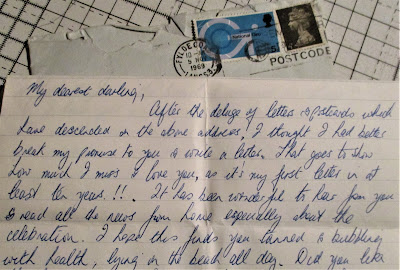 FYLDE CO
10-
5 NOV
1969
LANCS
POSTCODE
My dearest darling,
After the deluge of letters & postcards which
have descended on the above address, I thought I had better
break my promise to you & write a letter. That goes to show
how much I miss & love you, as it's my first letter in at
least ten years.!!!. It has been wonderful to hear from you
& read all the news from home especially about the
celebration. I hope this finds you tanned & bubbling
with health, lying on the beach all day. Did you like